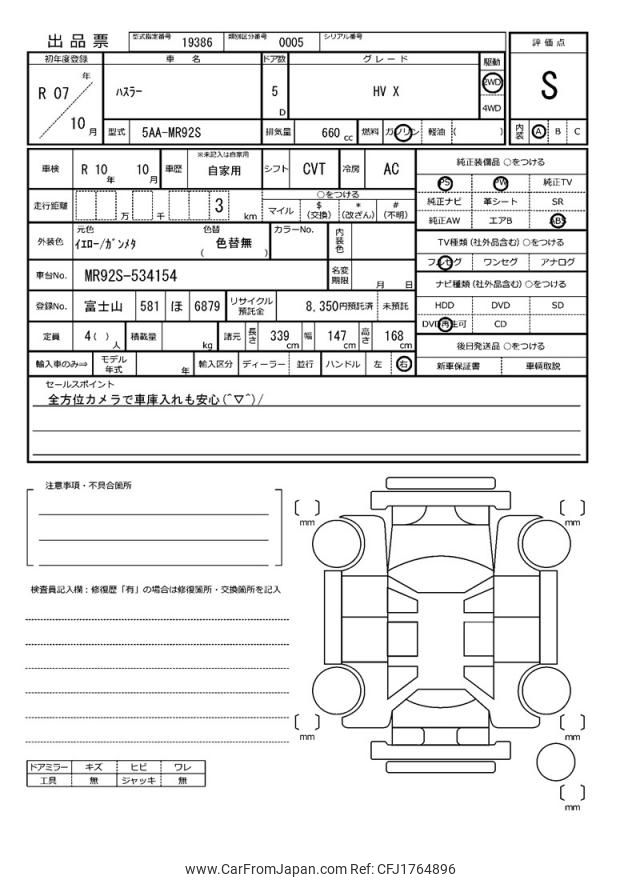 出品票 型式指定番号 19386 類別区分番号 0005 シリアル番号
評価点
S
内装 A B C
初年度登録 車名 ドア数 グレード 駆動
R 07 年 10 月
ハスラー 5 D HV X 2WD 4WD
型式 5AA-MR92S 排気量 660 cc 燃料 ガソリン 軽油 ( )
車検 R 10 年 10 月 車歴 ※未記入は自家用 自家用 シフト CVT 冷房 AC
走行距離 万 千 3 km
○をつける
マイル $(交換) *(改ざん) #(不明)
外装色 元色 イエロー/ガンメタ 色替 ( 色替無 ) カラーNo. 内装色
車台No. MR92S-534154 名変期限 月 日
登録No. 富士山 581 ほ 6879 リサイクル預託金 8,350円預託済 未預託
定員 4( )人 積載量 kg 諸元 長さ 339 cm 幅 147 cm 高さ 168 cm
輸入車のみ⇒ モデル年式 年 輸入区分 ディーラー 並行 ハンドル 左 右
純正装備品 ○をつける
PS PW 純正TV
純正ナビ 革シート SR
純正AW エアB ABS
TV種類 (社外品含む) ○をつける
フルセグ ワンセグ アナログ
ナビ種類 (社外品含む) ○をつける
HDD DVD SD
DVD再生可 CD
後日発送品 ○をつける
新車保証書 車輌取説
セールスポイント
全方位カメラで車庫入れも安心(^▽^)/
注意事項・不具合箇所
検査員記入欄:修復歴「有」の場合は修復箇所・交換箇所を記入
mm
mm
mm
mm
mm
ドアミラー キズ ヒビ ワレ
工具 無 ジャッキ 無
www.CarFromJapan.com Ref: CFJ1764896